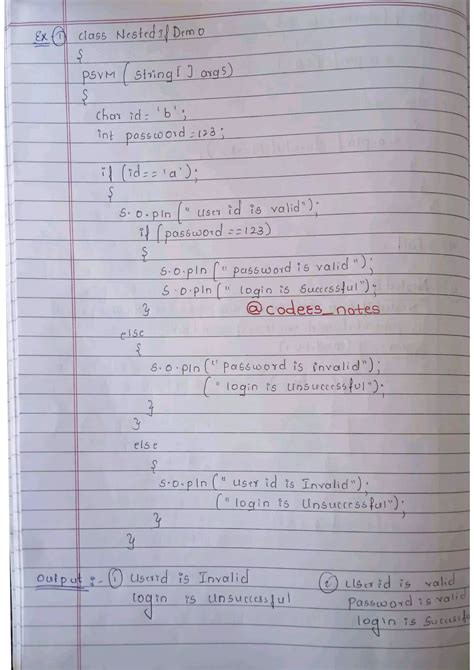 Ex ① class NestedIfDemo
{
PSVM (string[] args)
{
char id = 'b';
int password = 123;
if (id == 'a');
{
S.O.pln(" user id is valid");
if (password == 123)
{
S.O.pln(" password is valid");
S.O.pln(" login is successful");
}
@codees_notes
else
{
S.O.pln(" password is invalid");
(" login is unsuccessful");
}
}
else
{
S.O.pln(" user id is Invalid");
(" login is Unsuccessful");
}
}
output :- ① Userid is Invalid
login is unsuccessful
② Userid is valid
password is valid
login is success